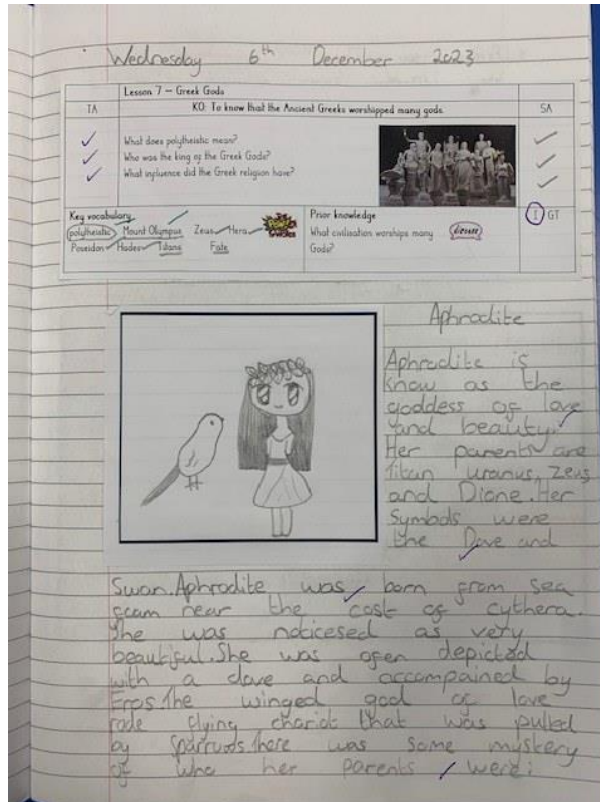 Wednesday 6th December 2023
Lesson 7 – Greek Gods
TA
KO: To know that the Ancient Greeks worshipped many gods.
SA
What does polytheistic mean?
Who was the king of the Greek Gods?
What influence did the Greek religion have?
Key vocabulary
polytheistic Mount Olympus Zeus Hera
Poseidon Hades Titans Fate
Prior knowledge
What civilisation worships many
Gods?
I GT
Aphrodite
Aphrodite is
know as the
goddess of love
and beauty.
Her parents are
Titan uranus, Zeus
and Dione. Her
Symbols were
the Dove and
Swan. Aphrodite was born from sea
foam near the cost of cythera.
She was noticesed as very
beautiful. She was ofen depicted
with a dove and accompained by
Eros. The winged god of love
rode flying chariot that was pulled
by sparrows. There was some mystery
of who her parents were: